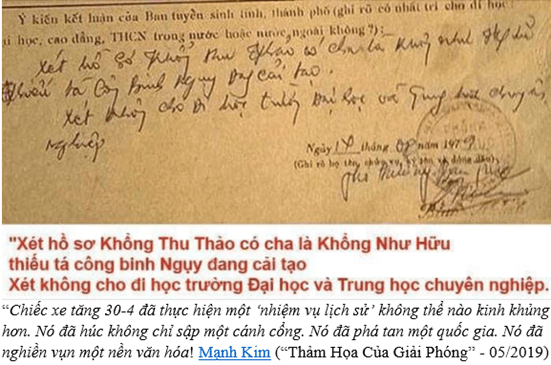 Ý kiến kết luận của Ban tuyển sinh tỉnh, thành phố (ghi rõ có nhất trí cho đi học
đại học, cao đẳng, THCN trong nước hoặc nước ngoài không?) :
Xét hồ sơ Khổng Thu Thảo có cha là Khổng Như Hữu
thiếu tá Công Binh Ngụy đang cải tạo.
Xét không cho đi học trường Đại học và Trung học chuyên
nghiệp
Ngày 14 tháng năm 1979
(Ghi rõ họ tên, chức vụ, ký tên và đóng dấu)
"Xét hồ sơ Khổng Thu Thảo có cha là Khổng Như Hữu
thiếu tá công binh Ngụy đang cải tạo
Xét không cho đi học trường Đại học và Trung học chuyên nghiệp.
“Chiếc xe tăng 30-4 đã thực hiện một ‘nhiệm vụ lịch sử’ không thể nào kinh khủng
hơn. Nó đã húc không chỉ sập một cánh cổng. Nó đã phá tan một quốc gia. Nó đã
nghiền vụn một nền văn hóa! Mạnh Kim (“Thảm Họa Của Giải Phóng” - 05/2019)